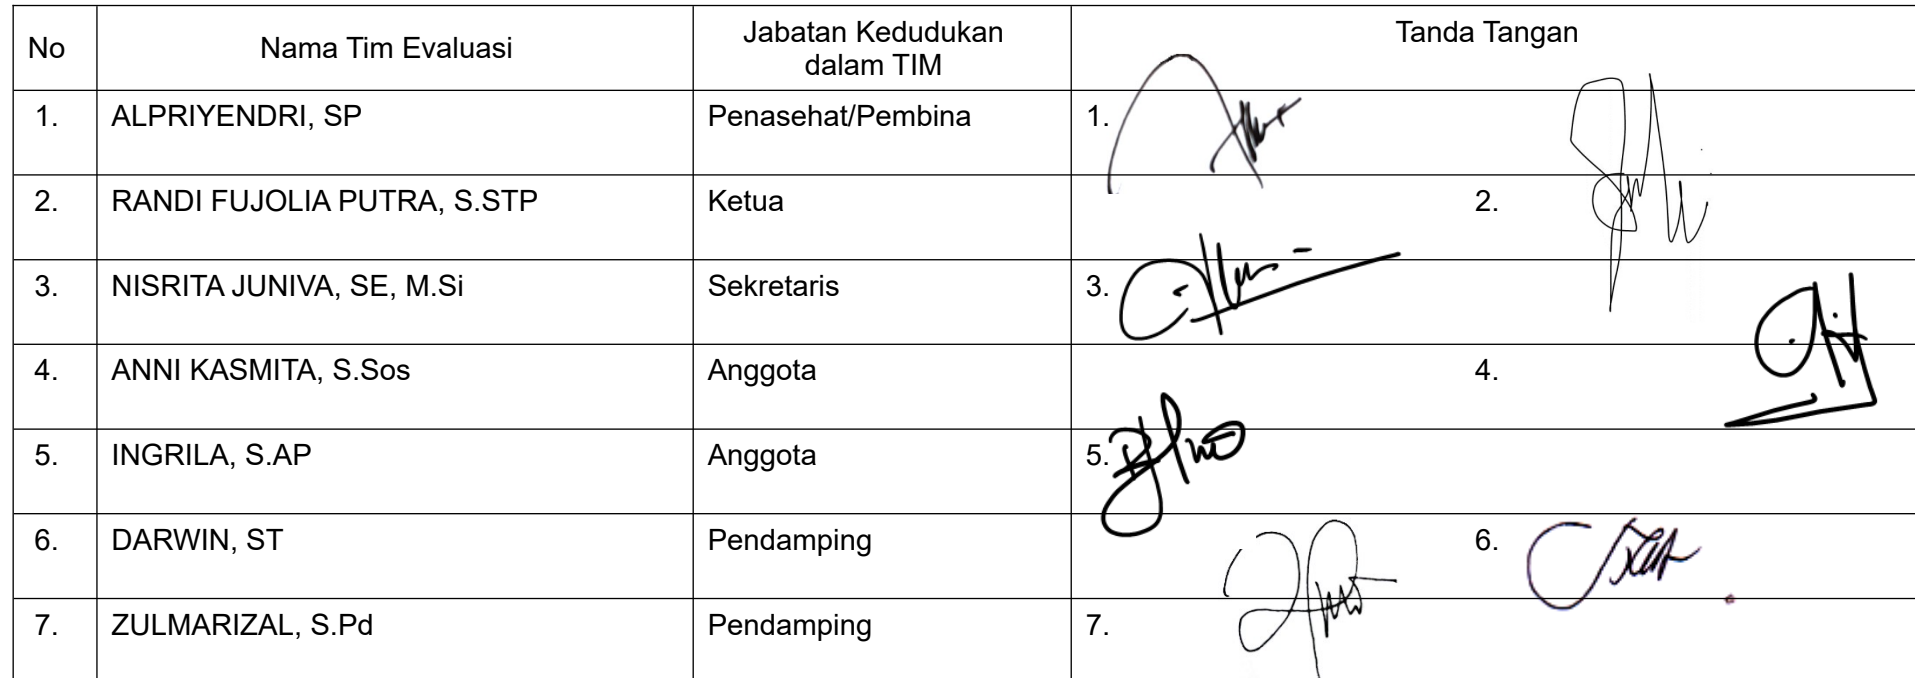 No Nama Tim Evaluasi Jabatan Kedudukan Tanda Tangan
dalam TIM
1. ALPRIYENDRI, SP Penasehat/Pembina 1.
2. RANDI FUJOLIA PUTRA, S.STP Ketua 2.
3. NISRITA JUNIVA, SE, M.Si Sekretaris 3.
4. ANNI KASMITA, S.Sos Anggota 4.
5. INGRILA, S.AP Anggota 5.
6. DARWIN, ST Pendamping 6.
7. ZULMARIZAL, S.Pd Pendamping 7.